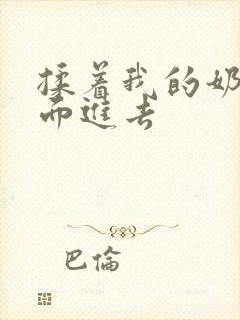 揉着我的奶
而進去
巴倫